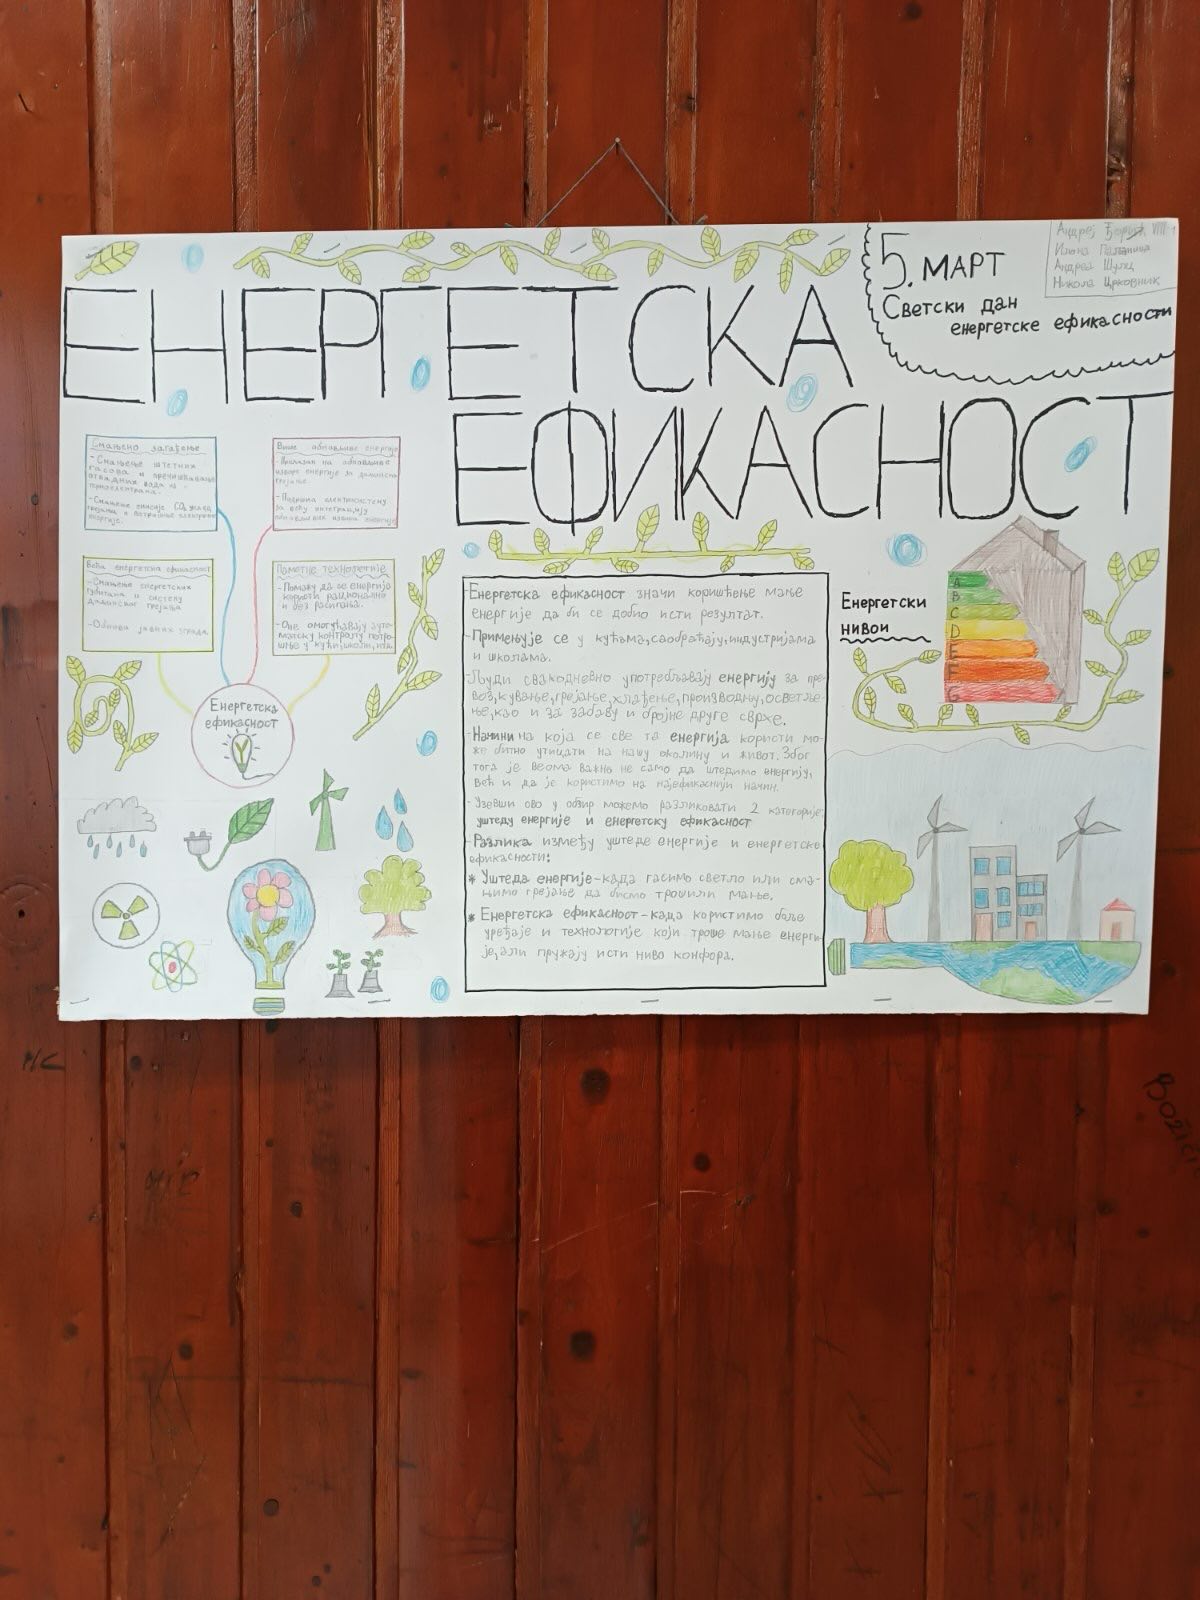 ЕНЕРГЕТСКА
ЕФИКАСНОСТ
5. МАРТ
Светски дан
енергетске ефикасности
Андреј VIII-1
Илона
Андреа Шулц
Никола Црковник
Смањено загађење
- Смањење штетних
гасова и пречишћавање
отпадних вода из
термоелектрана.
- Смањење емисије CO₂ услед
грејања и потрошње електричне
енергије.
Више обновљиве енергије
- Прелазак на обновљиве
изворе енергије за даљинско
грејање.
- Подршка електросистему
за већу интеграцију
обновљивих извора енергије
Већа енергетска ефикасност
- Смањење енергетских
губитака у систему
даљинског грејања
- Обнова јавних зграда
Паметне технологије
- Помажу да се енергија
користи рационално
и без расипања.
- Оне омогућавају ауто-
матску контролу потро-
шње у кући, школи, итд.
Енергетска
ефикасност
- Енергетска ефикасност значи коришћење мање
енергије да би се добио исти резултат.
- Примењује се у кућама, саобраћају, индустријама
и школама.
- Људи свакодневно употребљавају енергију за пре-
воз, кување, грејање, хлађење, производњу, осветље-
ње, као и за забаву и бројне друге сврхе.
- Начини на која се све та енергија користи мо-
же битно утицати на нашу околину и живот. Због
тога је веома важно не само да штедимо енергију,
већ и да је користимо на најефикаснији начин.
- Узевши ово у обзир можемо разликовати 2 категорије:
уштеду енергије и енергетску ефикасност
- Разлика између уштеде енергије и енергетске
ефикасности:
* Уштеда енергије - када гасимо светло или сма-
њимо грејање да бисмо трошили мање.
* Енергетска ефикасност - када користимо боље
уређаје и технологије који троше мање енерги-
је, али пружају исти ниво конфора.
Енергетски
нивои
A
B
C
D
E
F
G
НС
Božić